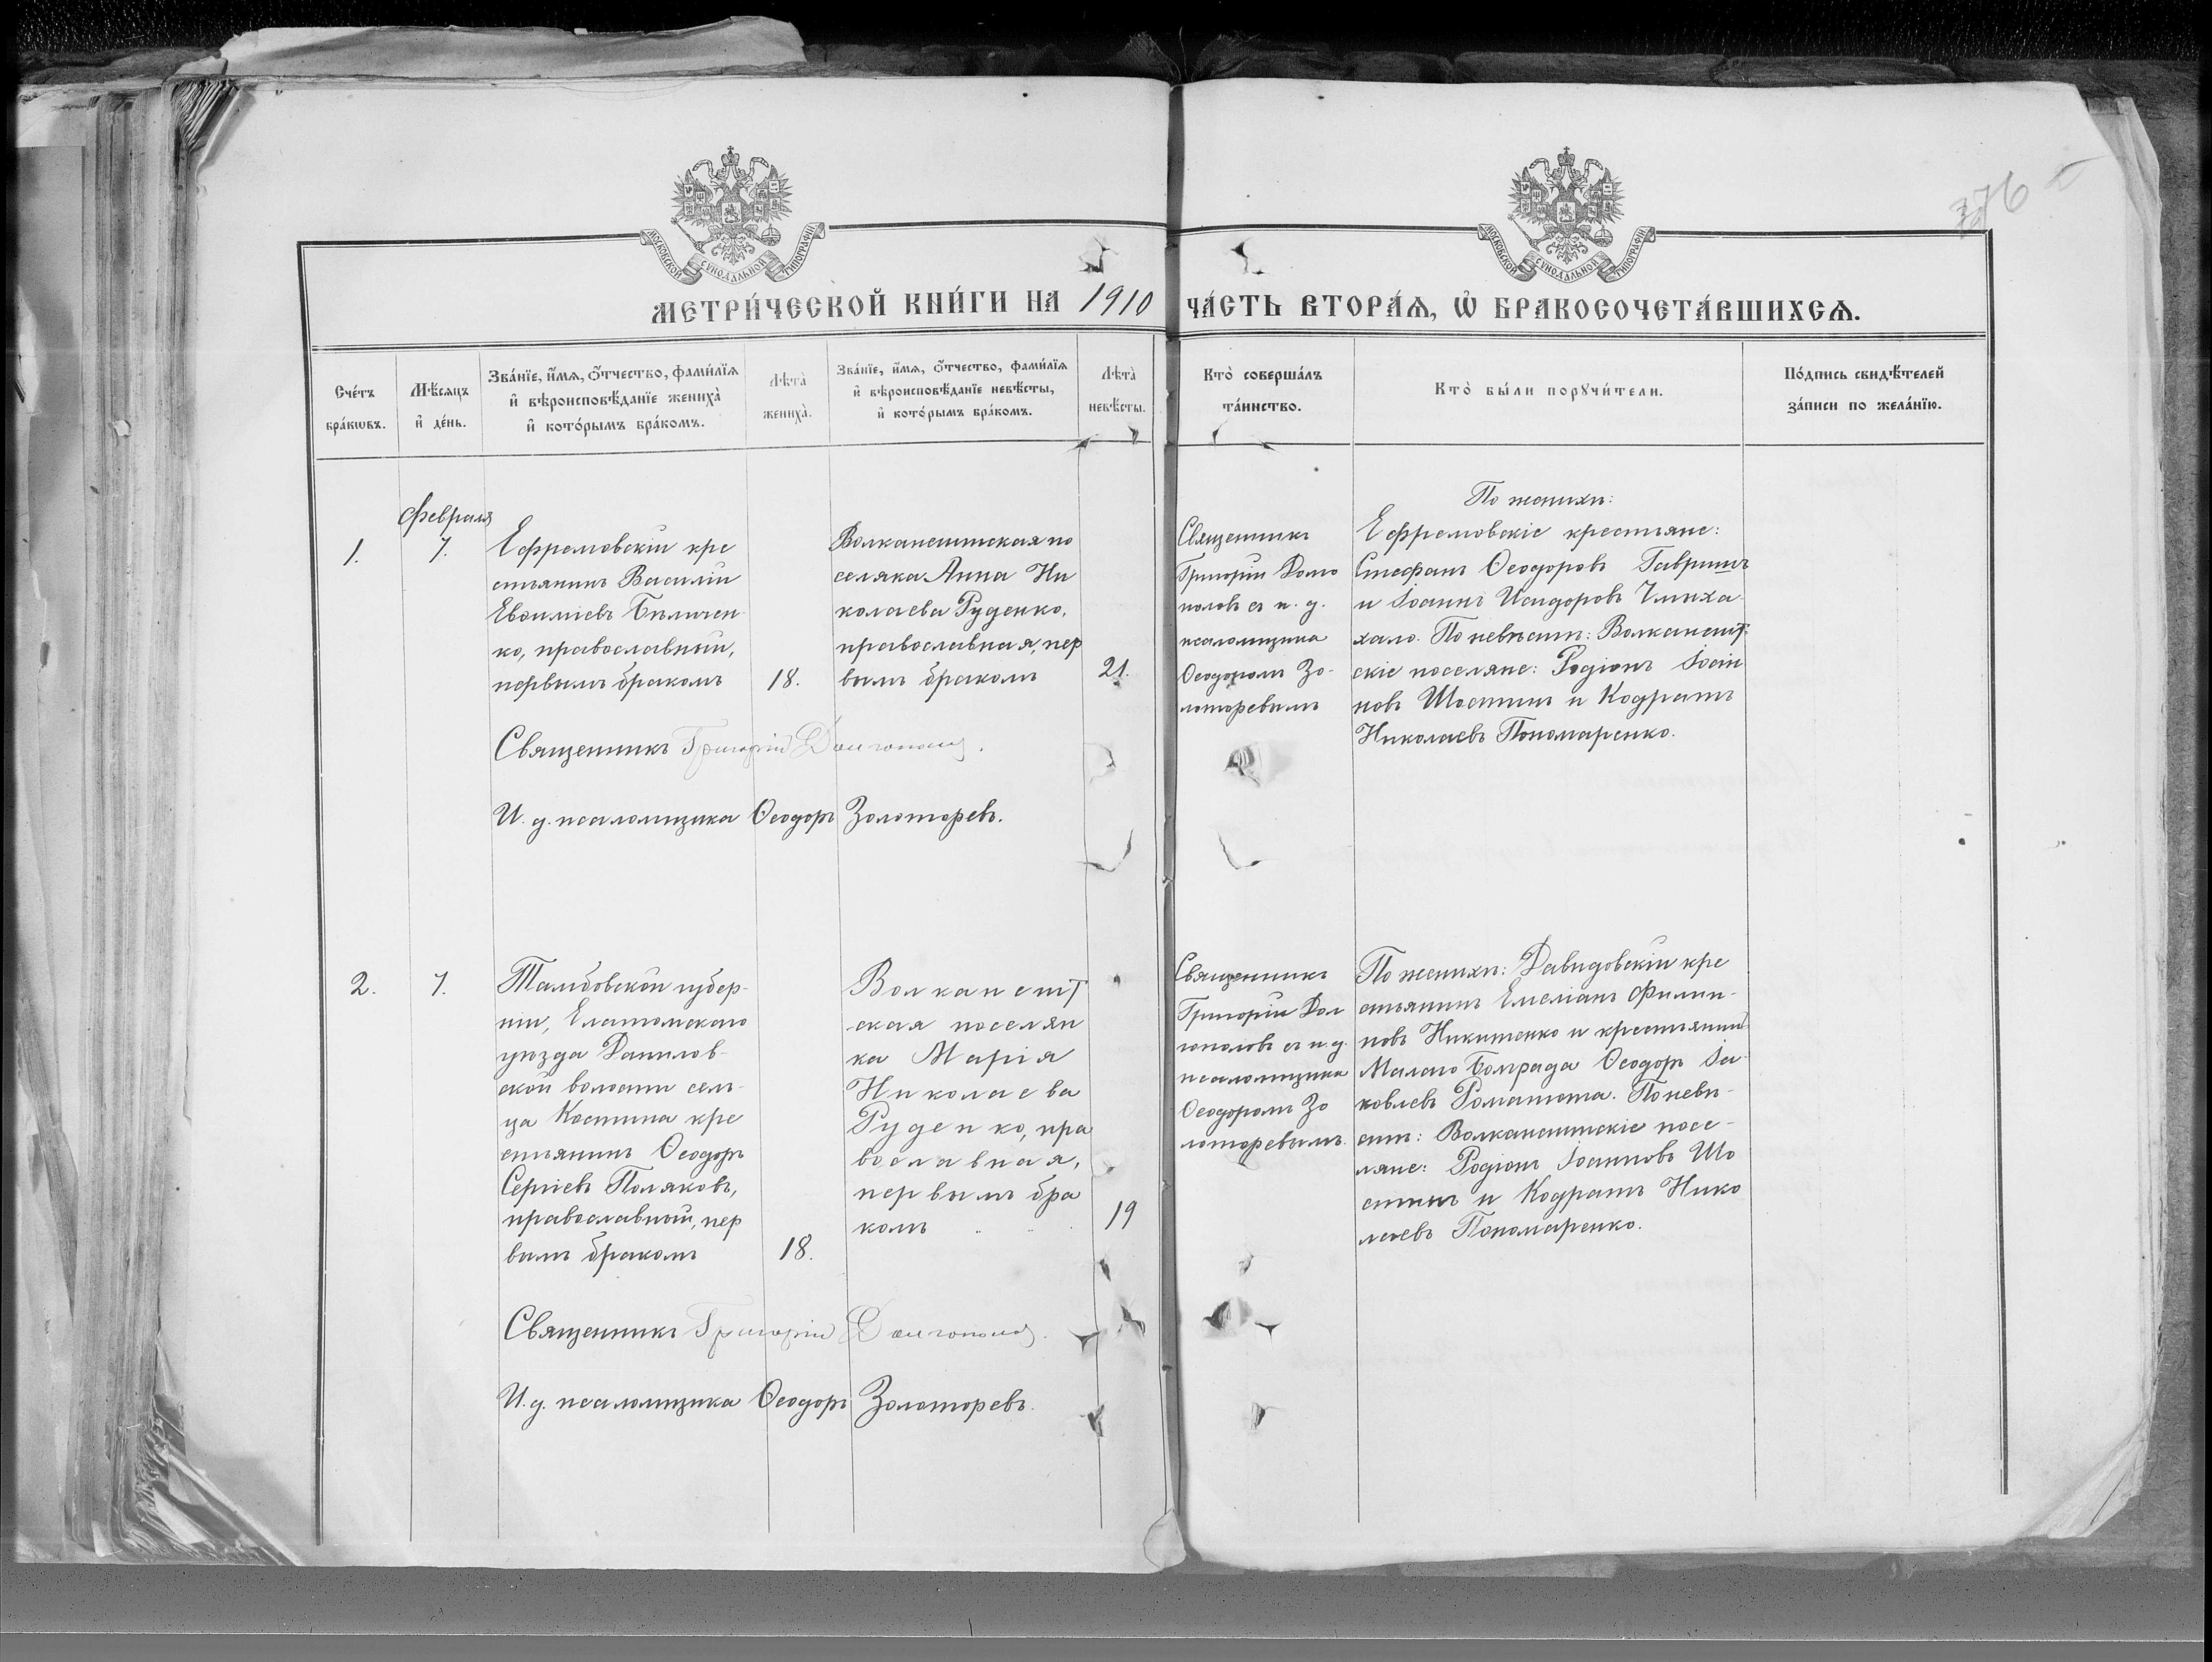 376
МОСКОВСКОЙ СѴНОДАЛЬНОЙ ТИПОГРАФІИ
МОСКОВСКОЙ СѴНОДАЛЬНОЙ ТИПОГРАФІИ
МЕТРИ́ЧЕСКОЙ КНИ́ГИ НА 1910 ЧА́СТЬ ВТОРА́Ѧ, Ѽ БРАКОСОЧЕТА́ВШИХСѦ.
Сче́тъ
бра́кѡвъ.
Мѣ́сяцъ
и҆ де́нь.
Зва́нїе, и҆́мѧ, ѻ҆́тчество, фами́лїѧ
и҆ вѣроисповѣ́данїе жениха̀
и҆ кото́рымъ бра́комъ.
Лѣта̀
жениха̀.
Зва́нїе, и҆́мѧ, ѻ҆́тчество, фами́лїѧ
и҆ вѣроисповѣ́данїе невѣ́сты,
и҆ кото́рымъ бра́комъ.
Лѣта̀
невѣ́сты.
Кто̀ соверша́лъ
та́инство.
Кто̀ бы́ли порꙋчи́тели.
По́дпись свидѣ́телей
за́писи по жела́нїю.
Февраля
1.
7.
Ефремовскій кре
стьянинъ Василій
Евѳиміевъ Биличен
ко, православный,
первымъ бракомъ
18.
Волканештская по
селянка Анна Ни
колаева Руденко,
православная, пер
вымъ бракомъ
21.
Священникъ
Григорій Долго
половъ съ и. д.
псаломщика
Ѳеодоромъ Зо-
лоторевымъ
По женихѣ:
Ефремовскіе крестьяне:
Стефанъ Ѳеодоровъ
и Іоаннъ Исидоровъ
По невѣстѣ: Волканешт-
скіе поселяне: Родіонъ Іоан
новъ Шостинъ и Кодратъ
Николаевъ Пономаренко.
Священникъ Григорій Долгополовъ.
И. д. псаломщика Ѳеодоръ Золоторевъ.
2.
7.
Тамбовской губер-
ніи, Елатомскаго
уѣзда Даниловъ-
ской волости сель-
ца Костина кре
стьянинъ Ѳеодоръ
Сергіевъ Поляковъ,
православный, пер
вымъ бракомъ
18.
Волканешт
ская поселян
ка Марія
Николаева
Руденко, пра
вославная,
первымъ бра
комъ
19
Священникъ
Григорій Дол
гополовъ съ и. д.
псаломщика
Ѳеодоромъ Зо
лоторевымъ.
По женихѣ: Давидовскій кре
стьянинъ Емеліанъ Филип-
повъ Никитенко и крестьянинъ
Малаго Болграда Ѳеодоръ Іа-
ковлевъ По невѣ-
стѣ: Волканештскіе посе-
ляне: Родіонъ Іоанновъ Шо
стинъ и Кодратъ Нико
лаевъ Пономаренко.
Священникъ Григорій Долгополовъ.
И. д. псаломщика Ѳеодоръ Золоторевъ.